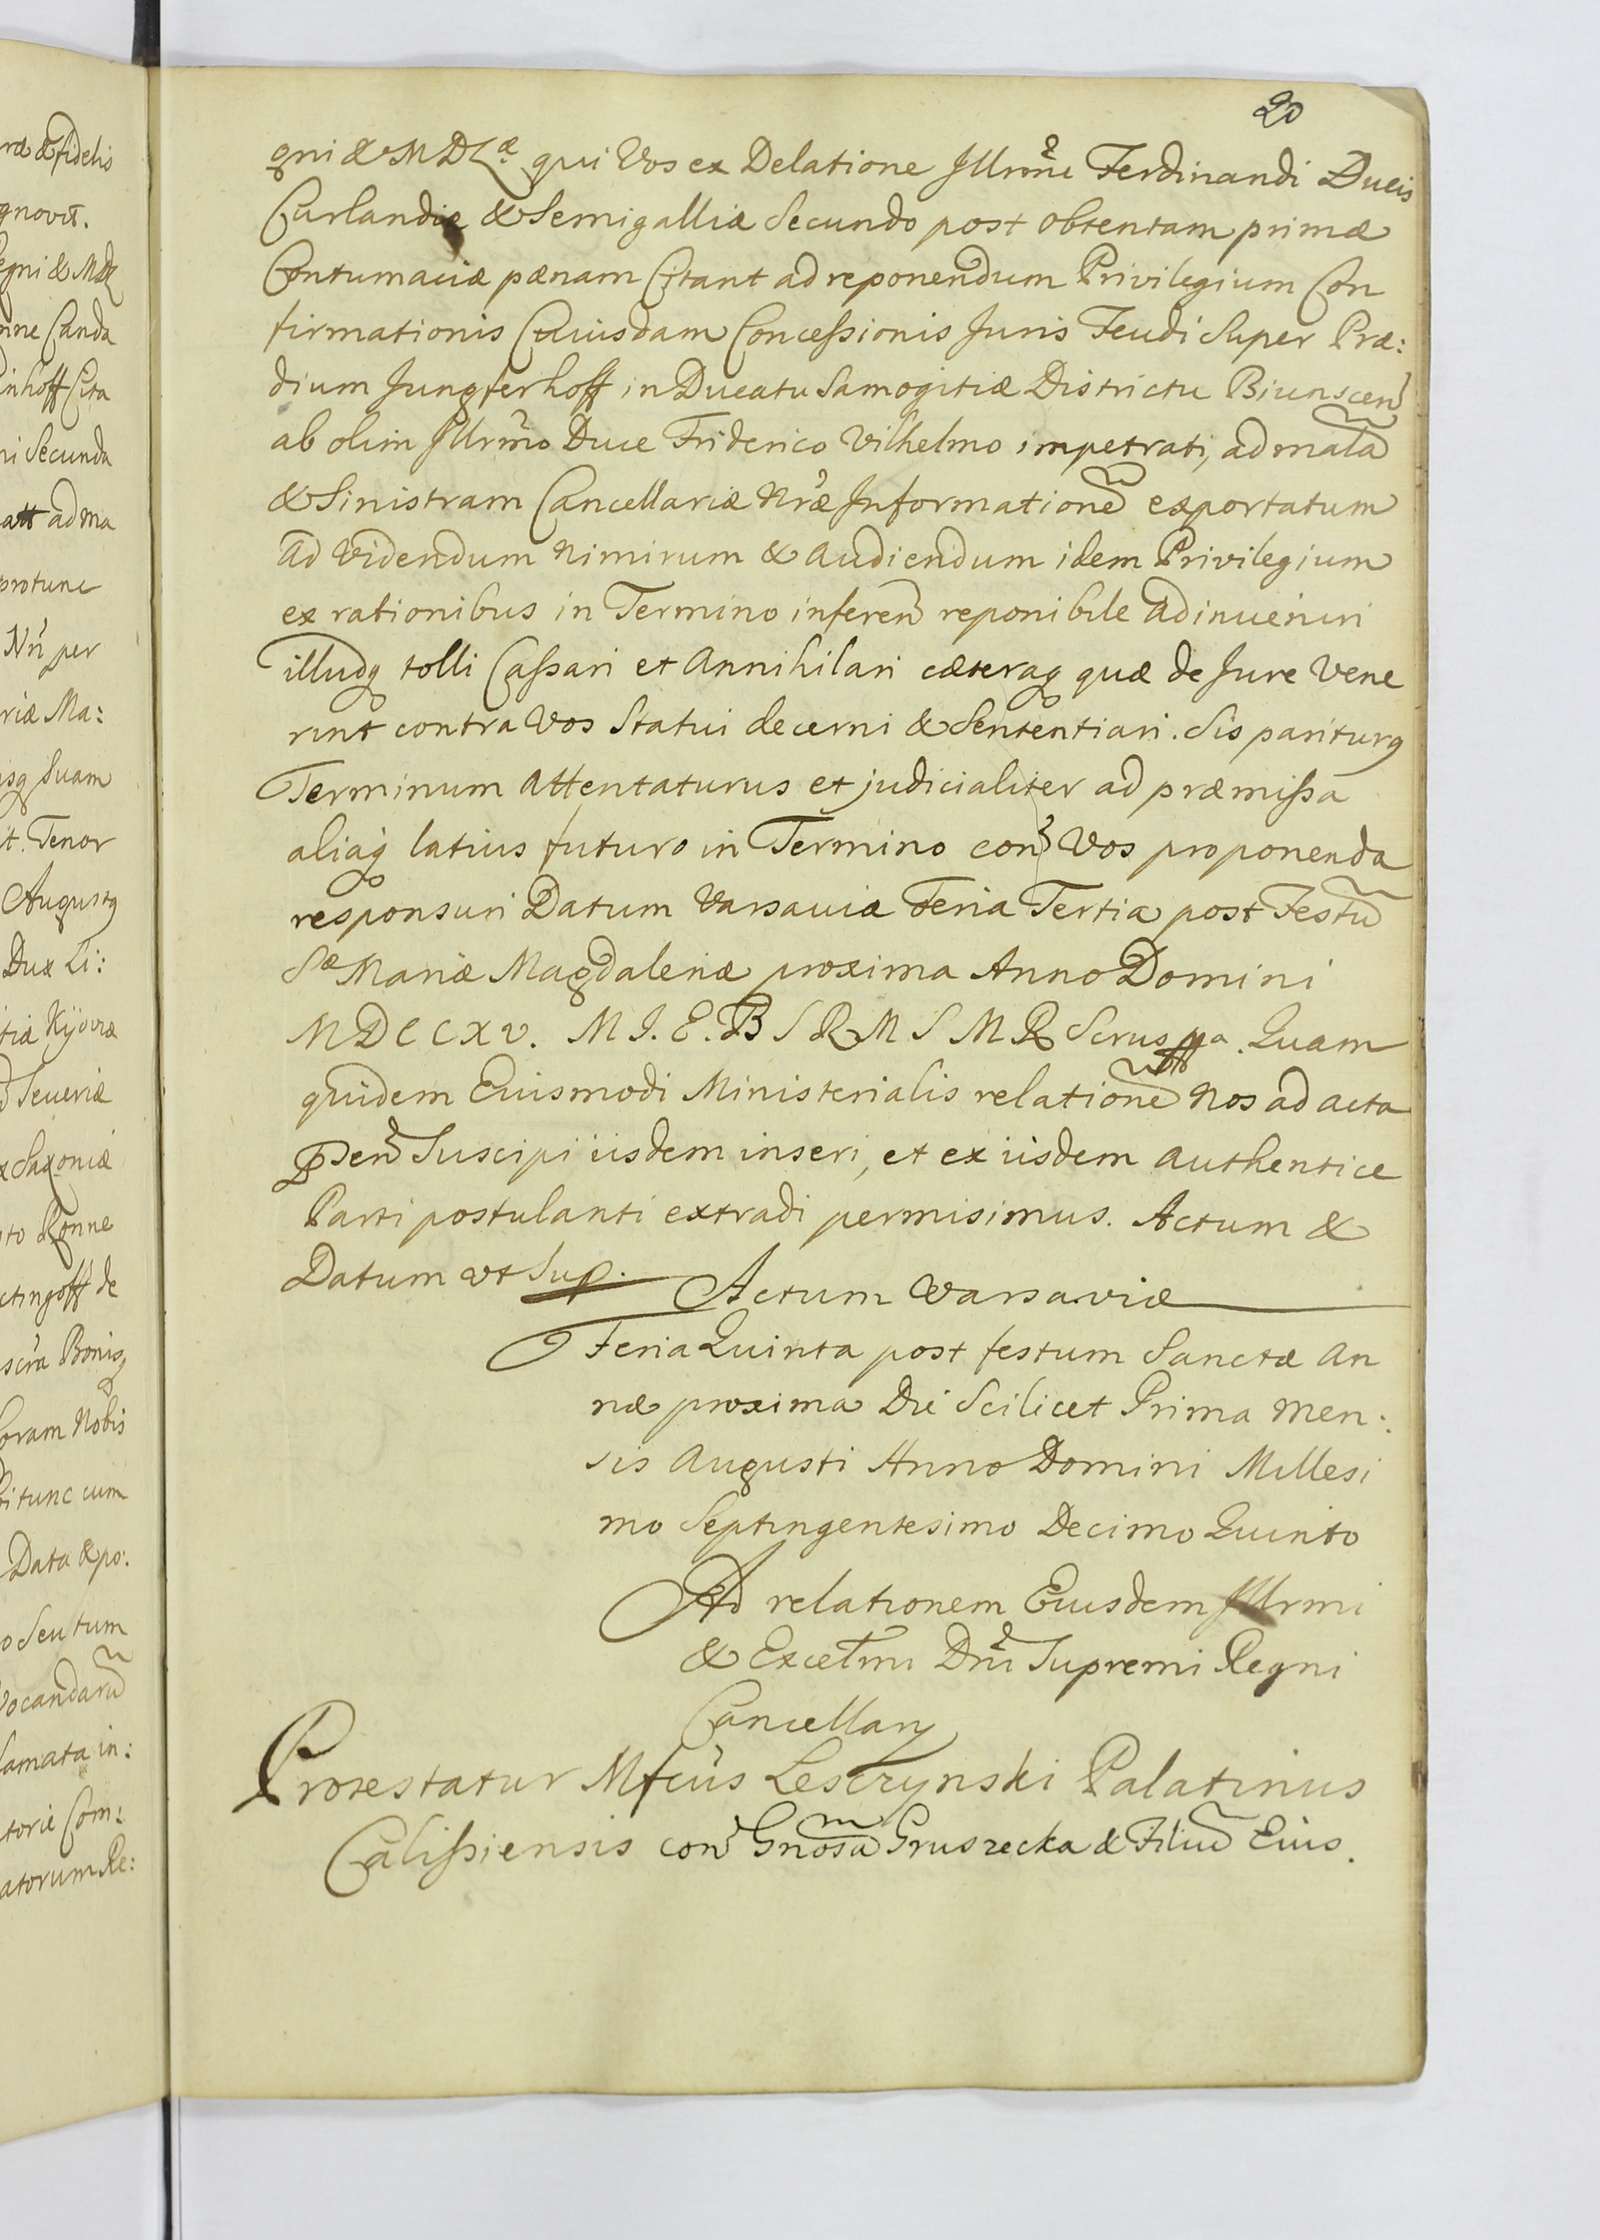 20
gni & M D Læ qui Vos ex Delatione Jllrmi Ferdinandi Ducis
Curlandiæ & Semigalliæ Secundo post obtentam primæ
Contumaciæ pænam Citant ad reponendum Privilegium Con
firmationis Cuiusdam Concessionis Juris Feudi Super Præ:
dium Jungferhoff in Ducatu Samogitiæ Districtu
ab olim Jllrmo Duce Friderico Vilhelmo impetrati, ad malã
& Sinistram Cancellariæ Nræ Informationẽ exportatum
ad Videndum Nimirum & Audiendum idem Privilegium
ex rationibus in Termino inferen reponibile adinueniri
illudq tolli Cassari et Annihilari cæteraq quæ de Jure Vene
rint contra Vos Statui decerni & Sententiari. Sis pariturq
Terminum Attentaturus et judicialiter ad præmissa
aliaq latius futuro in Termino con Vos proponenda
responsuri Datum Varsauiæ Feria Tertia post Festũ
Sæ Mariæ Magdalenæ proxima Anno Domini
M D C C X V. M J. E. B S R M S M R Scrus Quam
quidem Eiusmodi Ministerialis relationẽ Nos ad acta
pñ Suscipi iisdem inseri, et ex iisdem authentice
Parti postulanti extradi permisimus. Actum &
Datum vt Sup.
Actum Varsaviæ
Feria Quinta post festum Sanctæ An
næ proxima Die Scilicet Prima Men:
sis Augusti Anno Domini Millesi
mo Septingentesimo Decimo Quinto
Ad relationem Eiusdem Jllrmi
& Excellmi Dni Supremi Regni
Cancellarij
Protestatur Mfcus Lesczynski Palatinus
Calissiensis con Gnosã Gruszecka & Filiũ Eius.